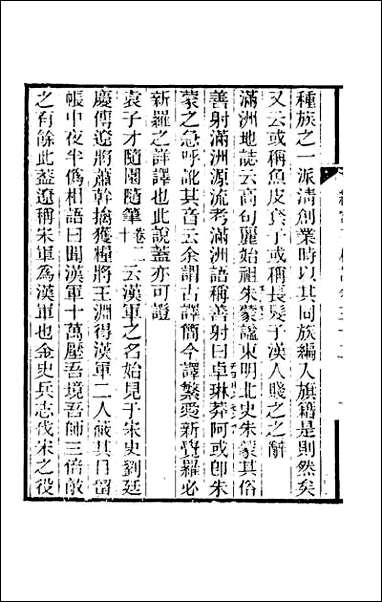 種族之一派淸創業時以其同族編入旗籍是則然矣
又云或稱魚皮套子或稱長髮子漢人賤之之辭
滿洲地誌云高句麗始祖朱蒙諡東明北史朱蒙其俗
善射滿洲源流考滿洲語稱善射曰卓琳莽阿或卽朱
蒙之急呼訛其音云余謂古譯簡今譯繁愛新覺羅必
新羅之詳譯也此說蓋亦可證
袁子才隨園隨筆卷二云漢軍之名始見于宋史劉廷
慶傳遼將蕭幹擒獲糧將王淵得漢軍二人蔽其目留
帳中夜半僞相語曰聞漢軍十萬壓吾境吾師三倍敵
之有餘此蓋遼稱宋軍為漢軍也金史兵志伐宋之役